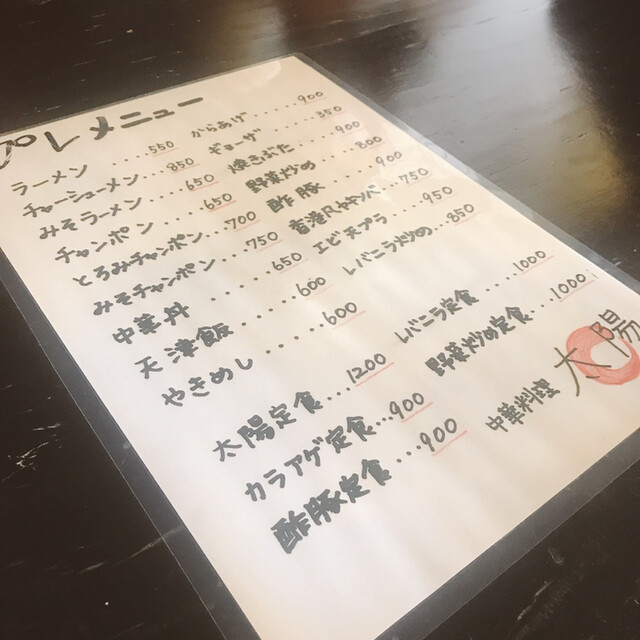 プレメニュー
ラーメン ････550
チャーシューメン･･850
みそラーメン ････650
チャンポン ････650
とろみチャンポン･･700
みそチャンポン･･･750
中華丼 ･････650
天津飯･････600
やきめし････600
からあげ･････900
ギョーザ ････350
焼きぶた････900
野菜炒め･･･800
酢豚 ････900
750
エビ天プラ････950
レバニラ炒め･･850
太陽定食･･･1200
カラアゲ定食･･･900
酢豚定食･･･900
レバニラ定食････1000
野菜炒め定食･･･1000
中華料理 太陽